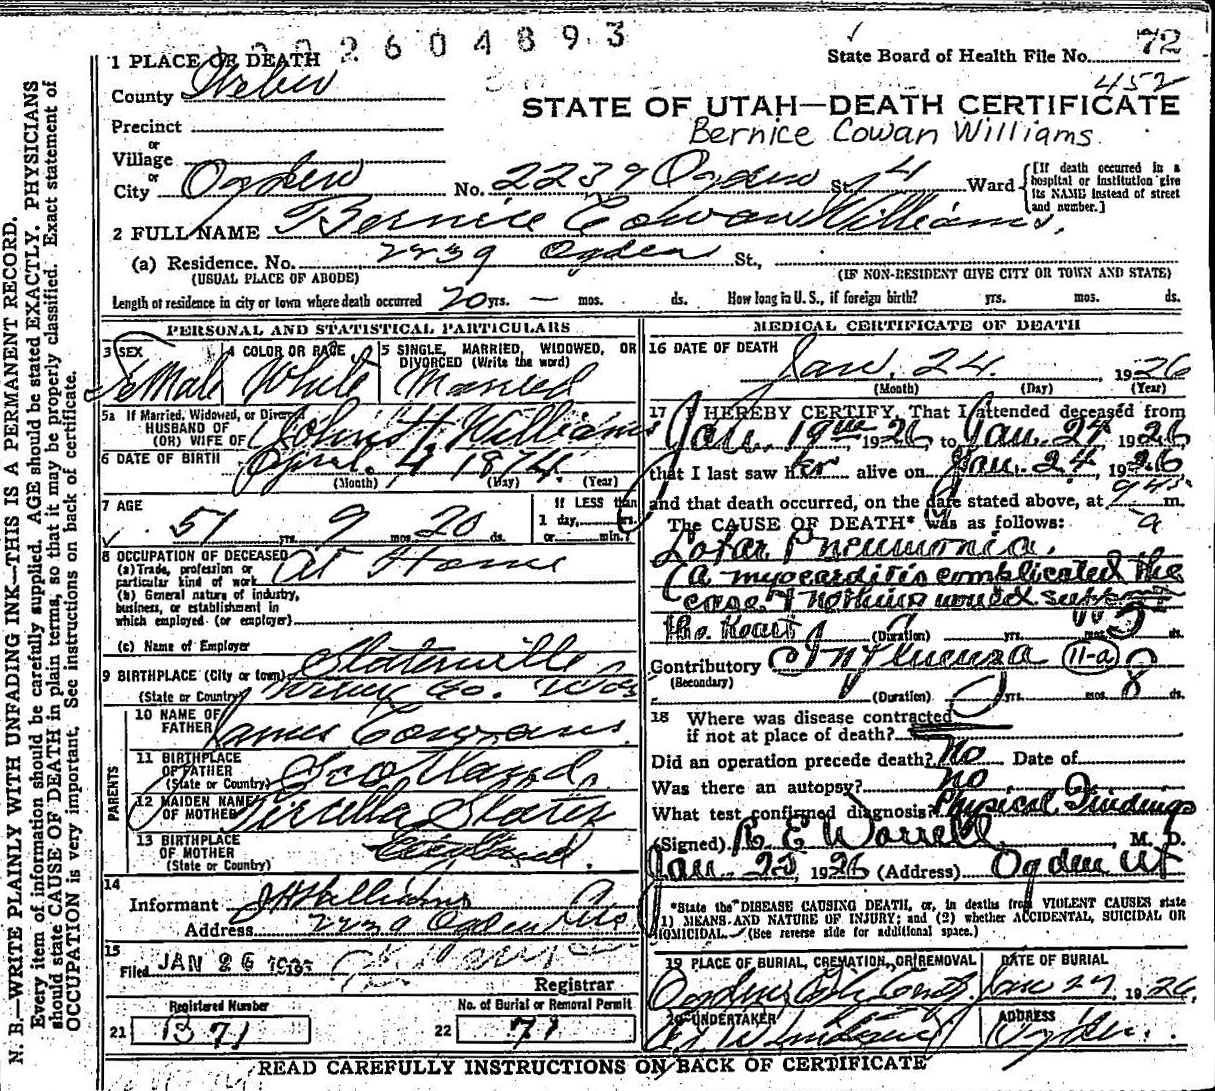 2604893
1 PLACE OF DEATH
State Board of Health File No. 72
452
County Weber
STATE OF UTAH—DEATH CERTIFICATE
Bernice Cowan Williams
Precinct
or
Village
or
City Ogden No. 2239 Ogden St. 4 Ward
[If death occurred in a hospital or institution give its NAME instead of street and number.]
2 FULL NAME Bernice Cowan Williams.
(a) Residence. No. 2239 Ogden St.,
(USUAL PLACE OF ABODE) (IF NON-RESIDENT GIVE CITY OR TOWN AND STATE)
Length of residence in city or town where death occurred 20 yrs. — mos. ds. How long in U. S., if foreign birth? yrs. mos. ds.
PERSONAL AND STATISTICAL PARTICULARS
3 SEX Female
4 COLOR OR RACE White
5 SINGLE, MARRIED, WIDOWED, OR DIVORCED (Write the word) Married
5a If Married, Widowed, or Divorced
HUSBAND OF
(OR) WIFE OF John H. Williams
6 DATE OF BIRTH April 4 1874
(Month) (Day) (Year)
7 AGE 51 yrs. 9 mos. 20 ds.
If LESS than
1 day, hrs.
or min.?
8 OCCUPATION OF DECEASED At Home
(a) Trade, profession or
particular kind of work
(b) General nature of industry,
business, or establishment in
which employed (or employer)
(c) Name of Employer
9 BIRTHPLACE (City or town) Slaterville
(State or Country) Weber Co.
PARENTS
10 NAME OF FATHER James Cowans
11 BIRTHPLACE OF FATHER
(State or Country) Scotland
12 MAIDEN NAME OF MOTHER Slater
13 BIRTHPLACE OF MOTHER
(State or Country) England.
14
Informant J H Williams
Address 2239 Ogden Ave
15
Filed JAN 26 192
Registrar
Registered Number
21 B 71
No. of Burial or Removal Permit
22 71
MEDICAL CERTIFICATE OF DEATH
16 DATE OF DEATH
Jan. 24. 1926
(Month) (Day) (Year)
17 I HEREBY CERTIFY, That I attended deceased from
Jan. 19 1926 to Jan. 24 1926
that I last saw her alive on Jan. 24, 1926
and that death occurred, on the date stated above, at 945 m.
a
The CAUSE OF DEATH* was as follows:
Lobar Pneumonia.
(a myocarditis complicated the
case & nothing would support
the heart (Duration) yrs. mos. 5 ds.
Contributory Influenza 11-a
(Secondary)
(Duration) yrs. mos. 8 ds.
18 Where was disease contracted
if not at place of death?
Did an operation precede death? No Date of
Was there an autopsy? no
What test confirmed diagnosis? Physical Findings
(Signed) R E Worrell M. D.
Jan. 25, 1926 (Address) Ogden Ut
*State the DISEASE CAUSING DEATH, or, in deaths from VIOLENT CAUSES state
1) MEANS AND NATURE OF INJURY; and (2) whether ACCIDENTAL, SUICIDAL OR
HOMICIDAL. (See reverse side for additional space.)
19 PLACE OF BURIAL, CREMATION, OR REMOVAL
Ogden City Cem.
DATE OF BURIAL
Jan 27 1926
20 UNDERTAKER
ADDRESS
Ogden.
READ CAREFULLY INSTRUCTIONS ON BACK OF CERTIFICATE
N. B.—WRITE PLAINLY WITH UNFADING INK—THIS IS A PERMANENT RECORD.
Every item of information should be carefully supplied. AGE should be stated EXACTLY. PHYSICIANS
should state CAUSE OF DEATH in plain terms, so that it may be properly classified. Exact statement of
OCCUPATION is very important. See instructions on back of certificate.